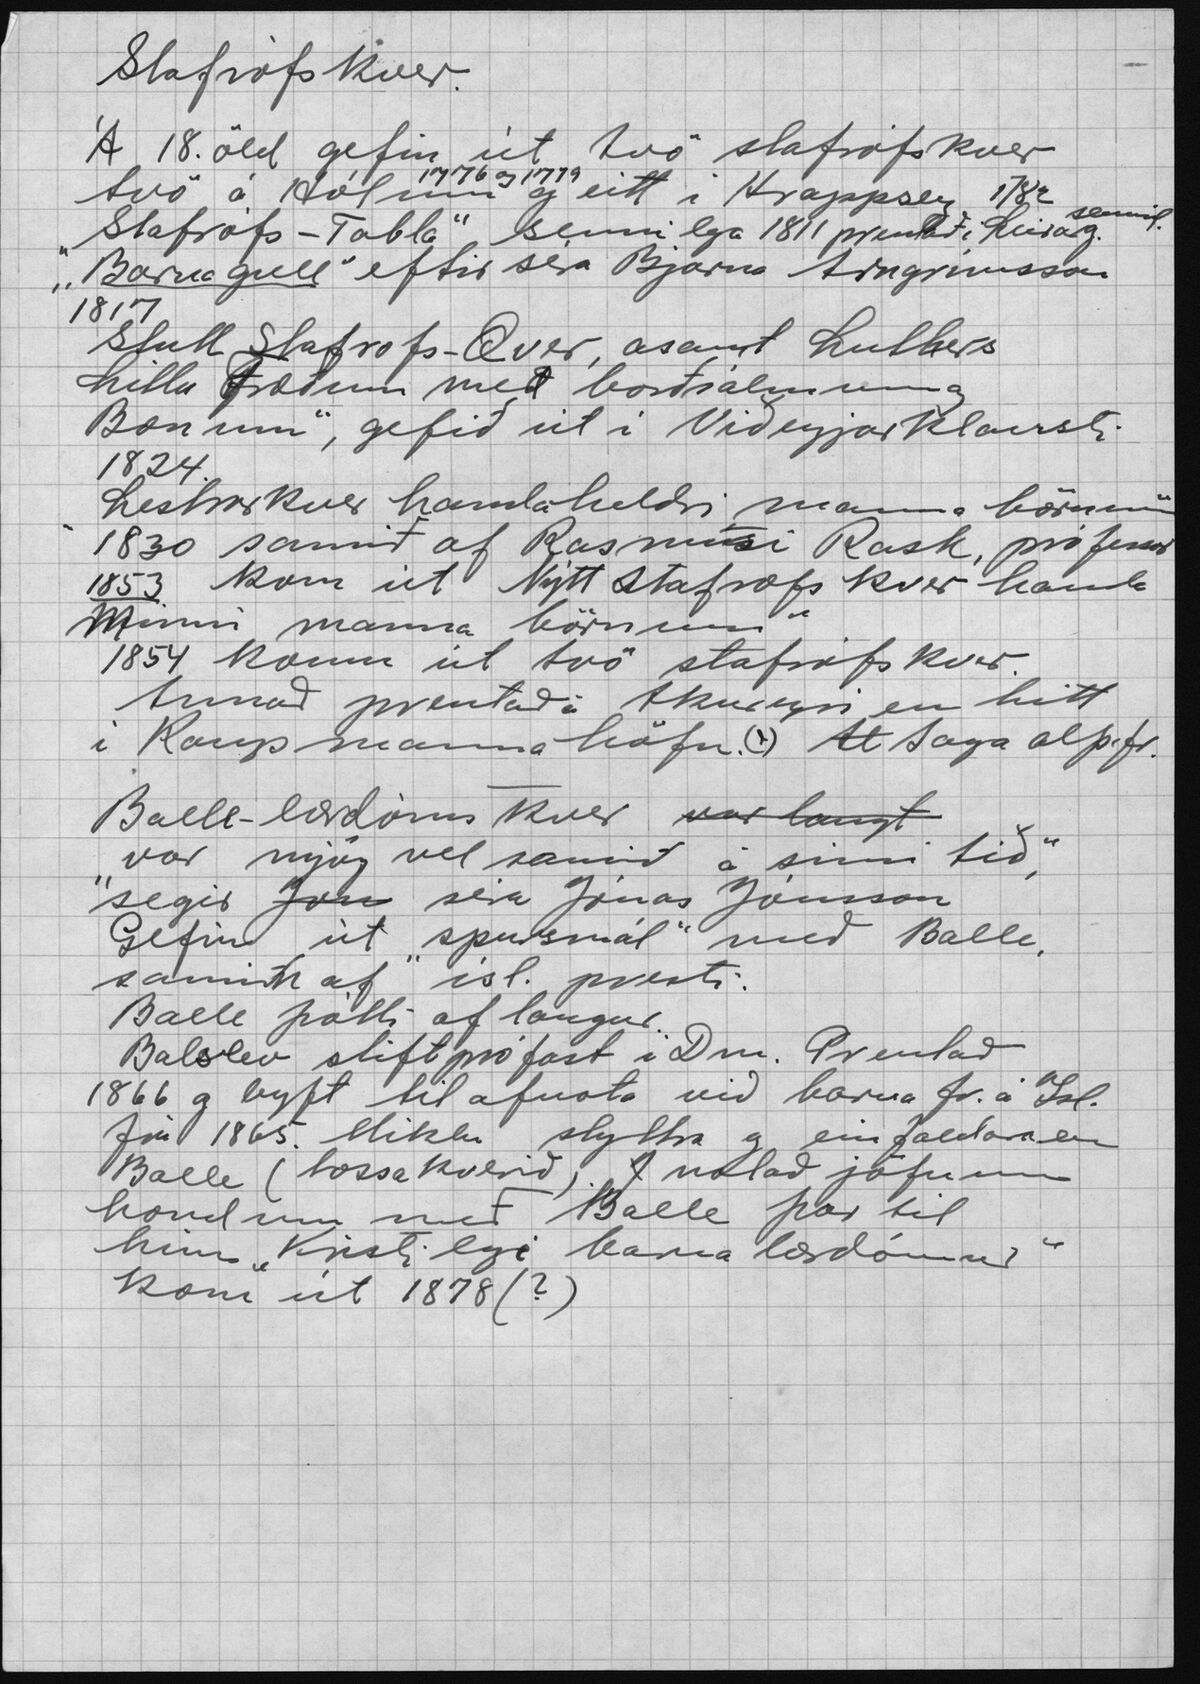 Stafrófskver.
Á 18. öld gefin út tvö stafrófskver
tvö á Hólum 1776 og 1779 og eitt í Hrappsey 1782
"Stafrófs-Tabla" sennilega 1811 prentað í Leirárg. sennil.
"Barnagull" eftir séra Bjarna Arngrímsson
1817
Stutt Stafrofs-Qver, ásamt Luthers
Litlu Fræðum með borðsálmum og
Bænum", gefið út í Viðeyjarklaustri
1824.
Lestrarkver handa heldri manna börnum"
1830 samið af Rasmusi Rask, prófessor
1853 kom út Nýtt stafrófskver handa
Minni manna börnum"
1854 komu út tvö stafrófskver.
Annað prentað á Akureyri en hitt
í Kaupmannahöfn. (1) At Saga alþ.fr.
Balle-lærdómskver var langt
"var mjög vel samið á sinni tíð,"
"segir Jón séra Jónas Jónsson
Gefin út "spursmál" með Balle,
samin af ísl. presti.
Balle þótti of langur.
Balslev stiftprófast í Dm. Prentað
1866 og leyft til afnota við barnafr. á Ísl.
frá 1865. Miklu styttra og einfaldara en
Balle (tossakverið). Notað jöfnum
höndum með Balle þar til
hinn "Kristilegi barnalærdómur"
kom út 1878 (?)